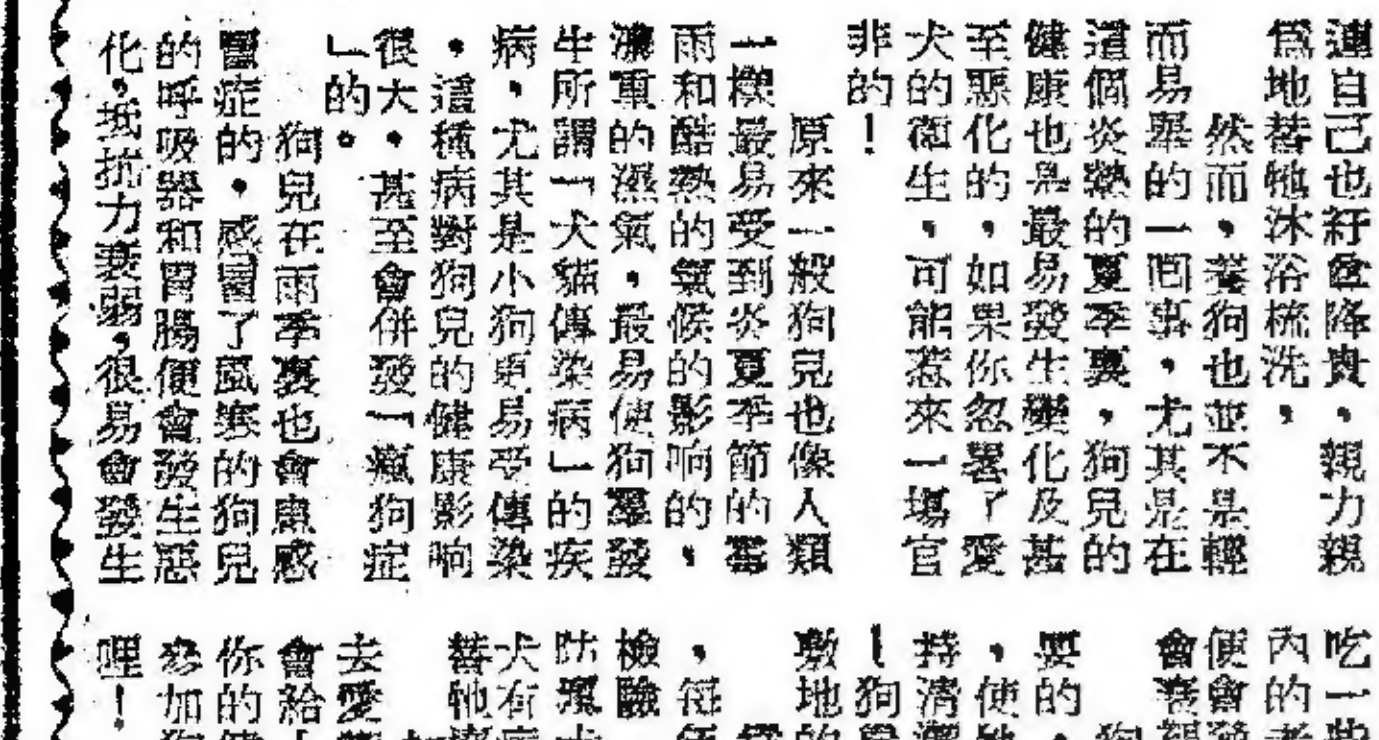 連自己也紆尊降貴,親力親
爲地替牠沐浴梳洗,
然而,養狗也並不是輕
而易舉的一回事,尤其是在
這個炎熱的夏季裏,狗兒的
健康也是最易發生變化及甚
至惡化的,如果你忽畧了愛
犬的衞生,可能惹來一塲官
非的!
原來一般狗兒也像人類
一樣最易受到炎夏季節的霉
雨和酷熱的氣候的影响的,
濃重的濕氣,最易使狗羣發
生所謂「犬貓傳染病」的疾
病,尤其是小狗更易受傳染
,這種病對狗兒的健康影响
很大,甚至會併發「瘋狗症
」的。
狗兒在雨季裏也會患感
冒症的,感冒了風寒的狗兒
的呼吸器和胃腸便會發生惡
化,抵抗力衰弱,很易會發生
吃一些
內的
便會發
會衰弱
狗
要的,
,使牠
持清潔
!狗
敷地的
,每
檢驗
防瘋
犬有
替牠
去愛
會給
你的健
參加狗
哩!